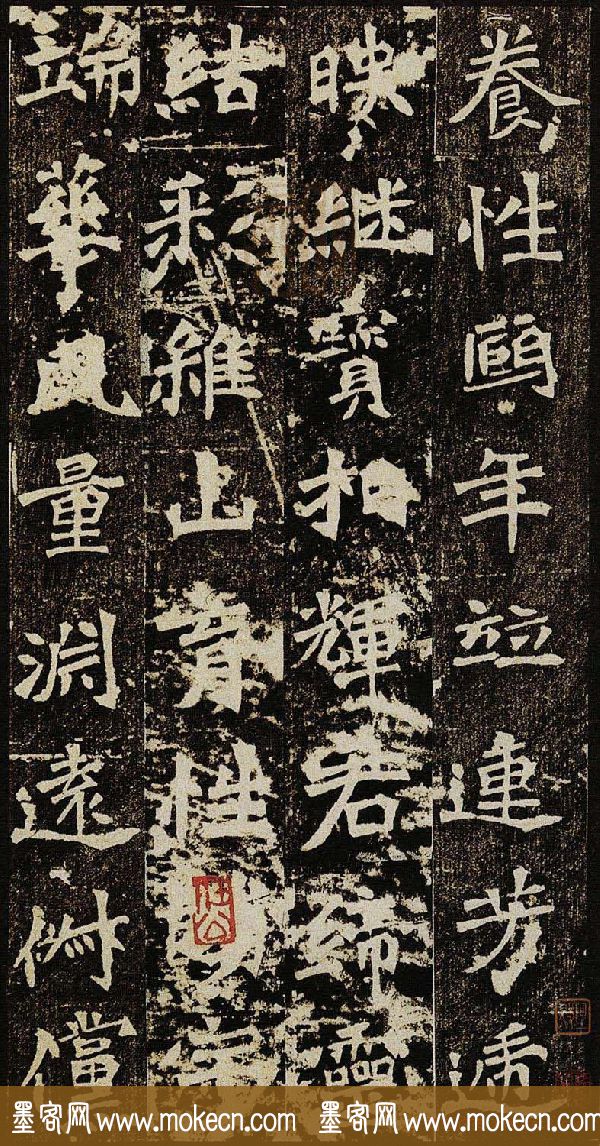 養性頤年並連芳遞
映繼寶相輝君締靈
結彩維山育性宇
端華風量淵遠倜儻
任公
墨客网 www.mokecn.com 墨客网 www.mokecn.com